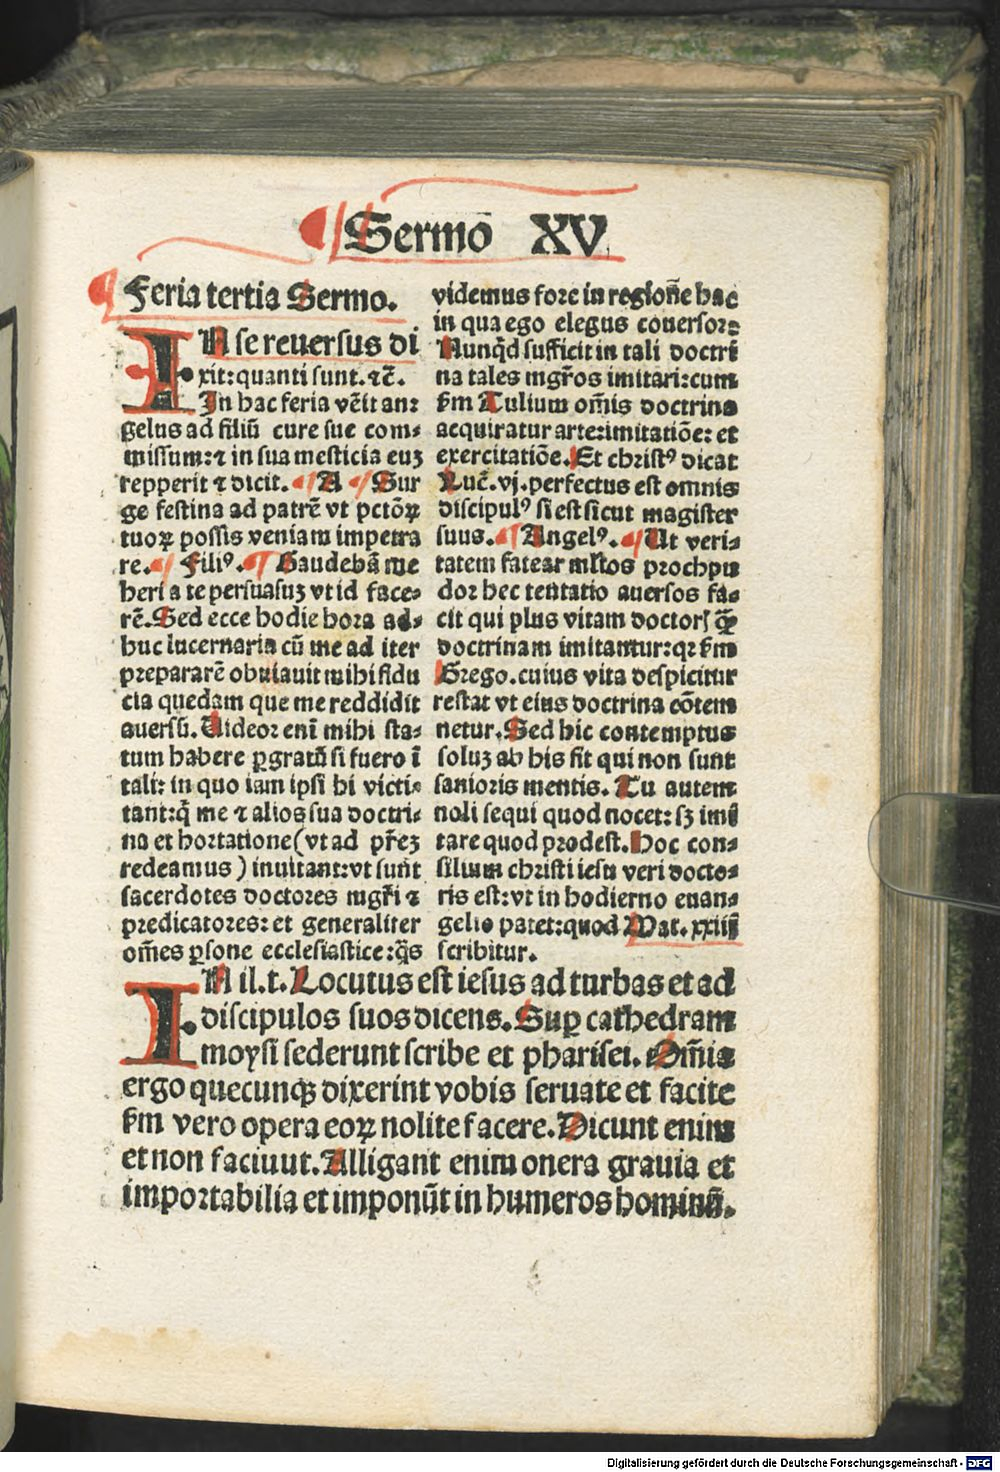 Sermo XV
Feria tertia Sermo.
IN se reuersus di
xit: quanti sunt. ⁊c̄.
In hac feria vēit an⸗
gelus ad filiū cure sue com⸗
missum: ⁊ in sua mesticia euꝫ
repperit ⁊ dicit. ¶ A ¶ Sur
ge festina ad patrē vt pctōꝝ
tuoꝝ possis veniam impetra
re. ¶ Filiꝰ. ¶ Gaudebā me
heri a te persuasuꝫ vt id face⸗
rē. Sed ecce hodie hora ad⸗
huc lucernaria cū me ad iter
prepararē obuiauit mihi fidu
cia quedam que me reddidit
auersū. Uideor enī mihi sta⸗
tum habere ꝑgratū si fuero ī
tali: in quo iam ipsi hi victi⸗
tant: q̄ me ⁊ alios sua doctri⸗
na et hortatione (vt ad pr̄eꝫ
redeamus) inuitant: vt sunt
sacerdotes doctores mgr̄i ⁊
predicatores: et generaliter
om̄es ꝑsone ecclesiastice: q̄s
videmus fore in regione hac
in qua ego elegus couersor:
Nunqd̄ sufficit in tali doctri
na tales mgr̄os imitari: cum
ẜm Tulium om̄is doctrina
acquiratur arte: imitatiōe: et
exercitatiōe. Et christꝰ dicat
Luc̄. vj. perfectus est omnis
discipulꝰ si est sicut magister
suus. ¶ Angelꝰ. ¶ Ut veri⸗
tatem fatear ml̄tos prochpu
dor hec tentatio auersos fa⸗
cit qui plus vitam doctorꝭ ꝙ̄
doctrinam imitantur: qꝛ ẜm
Grego. cuius vita despicitur
restat vt eius doctrina cōtem
netur. Sed hic contemptus
soluꝫ ab his fit qui non sunt
sanioris mentis. Tu autem
noli sequi quod nocet: sꝫ imi
tare quod prodest. Hoc con⸗
silium christi iesu veri docto⸗
ris est: vt in hodierno euan⸗
gelio patet: quod Mat. xxiij
scribitur.
IN il. t. Locutus est iesus ad turbas et ad
discipulos suos dicens. Suꝑ cathedram
moysi sederunt scribe et pharisei. Om̄ia
ergo quecunqꝫ dixerint vobis seruate et facite
ẜm vero opera eoꝝ nolite facere. Dicunt enim
et non faciuut. Alligant enim onera grauia et
importabilia et imponūt in humeros hominū.
Digitalisierung gefördert durch die Deutsche Forschungsgemeinschaft - DFG